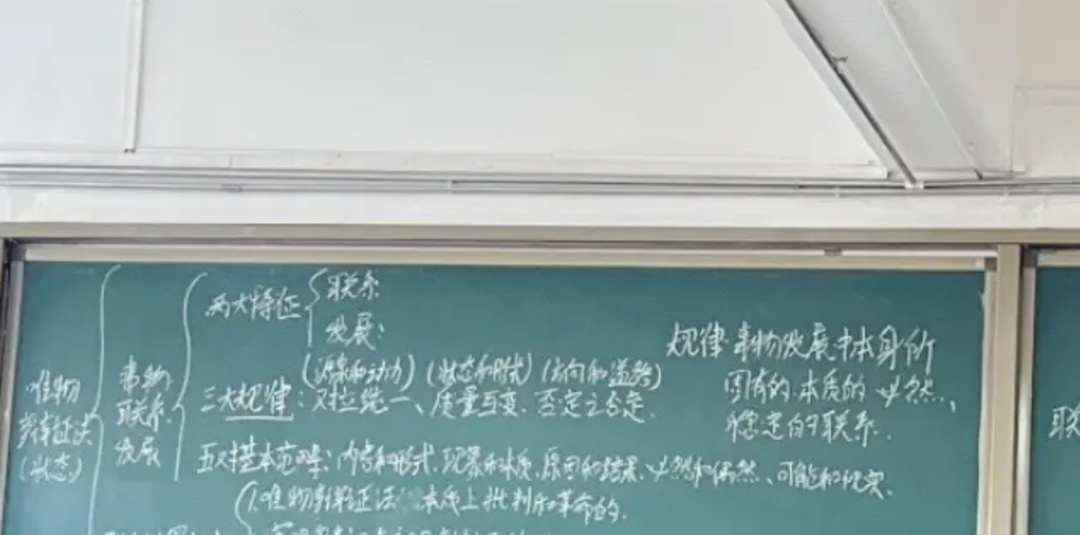 唯物
辩证法
(状态)
事物
联系
发展
两大特征
联系
发展:
(源泉和动力) (状态和形式) (方向和道路)
三大规律: 对立统一、质量互变、否定之否定.
五对基本范畴: 内容和形式、现象和本质、原因和结果、必然和偶然、可能和现实.
1.唯物辩证法 本质上批判和革命的.
规律 事物发展中本身所
固有的、本质的、必然、
稳定的联系.
联